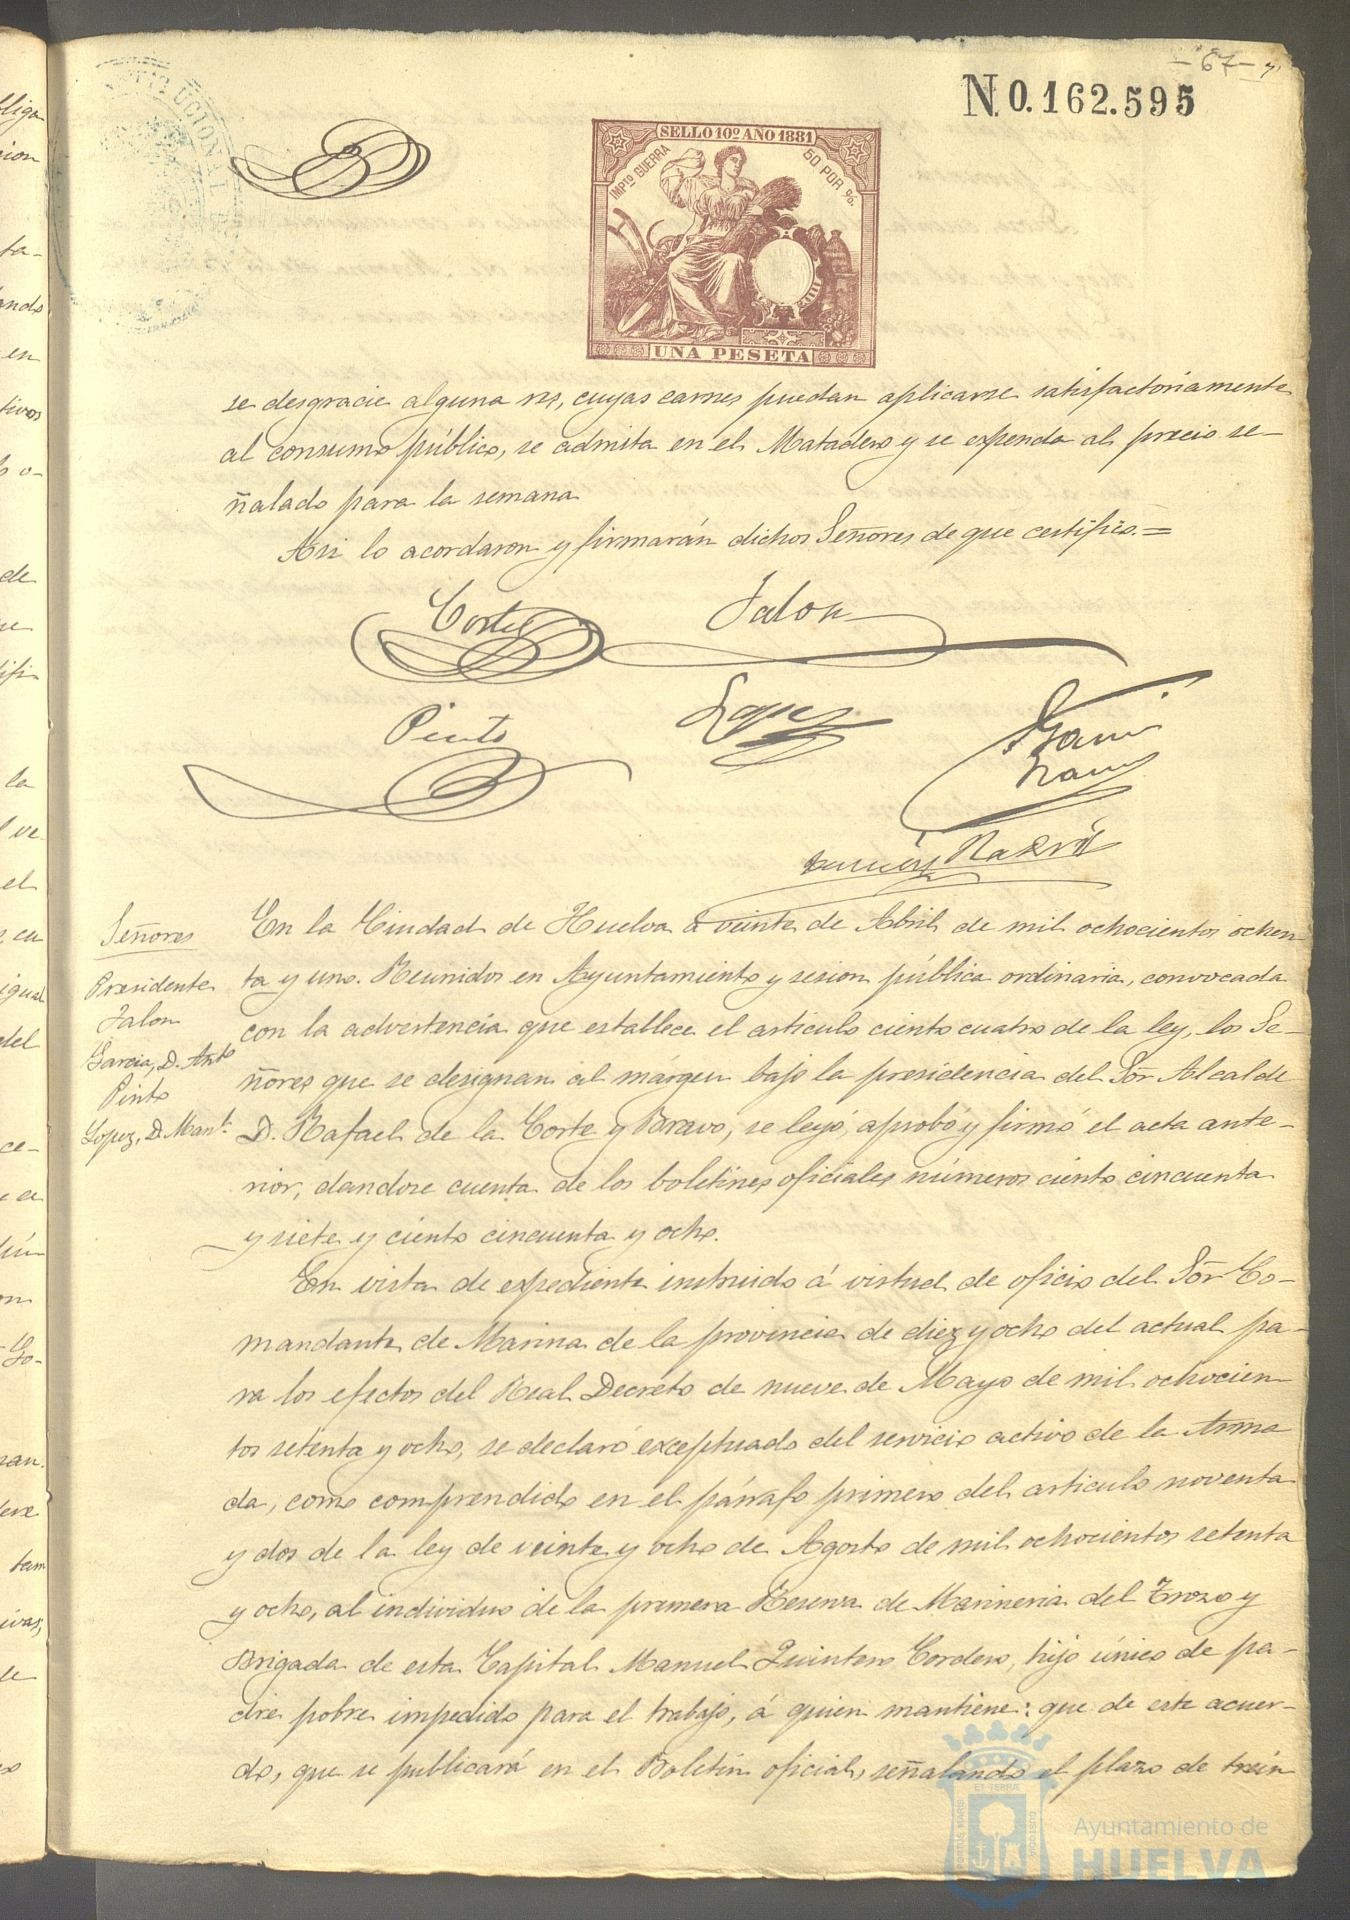 - 67 -
N 0.162.595
SELLO 10º AÑO 1881
IMPTO GUERRA
50 POR %.
UNA PESETA
se desgracie alguna res, cuyas carnes puedan aplicarse satisfactoriamente
al consumo público, se admita en el Matadero y se expenda al precio se-
ñalado para la semana
Asi lo acordaron y firmarán dichos Señores de que certifico.=
Corte
Jalon
Pinto
Lopez
Garcia
En la Ciudad de Huelva á veinte de Abril de mil ochocientos ochen
ta y uno. Reunidos en Ayuntamiento y sesion pública ordinaria, convocada
con la advertencia que establece el articulo ciento cuatro de la ley, los Se-
ñores que se designan al márgen bajo la presidencia del Sor Alcalde
D. Rafael de la Corte y Bravo, se leyó, aprobó y firmó el acta ante-
rior, dandose cuenta de los boletines oficiales números ciento cincuenta
y siete y ciento cincuenta y ocho.
Señores
Presidente
Jalon
Garcia, D. Anto
Pinto
Lopez, D. Manl.
En vista de expediente instruido á virtud de oficio del Sor Co-
mandante de Marina de la provincia de diez y ocho del actual pa-
ra los efectos del Real Decreto de nueve de Mayo de mil ochocien
tos setenta y ocho, se declaró exceptuado del servicio activo de la Arma
da, como comprendido en el párrafo primero del articulo noventa
y dos de la ley de veinte y ocho de Agosto de mil ochocientos setenta
y ocho, al individuo de la primera Reserva de Marineria del Trozo y
Brigada de esta Capital Manuel Quintero Cordero, hijo único de pa-
dre pobre impedido para el trabajo, á quien mantiene: que de este acuer-
do, que se publicará en el Boletin oficial, señalando el plazo de trein
Ayuntamiento de
HUELVA